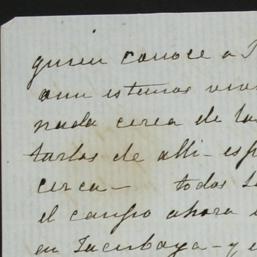 quien conoce a
aun estemos
nada cerca de la
tarlos de alli - esp
cerca - todos
el campo ahora
en Tacubaya - y